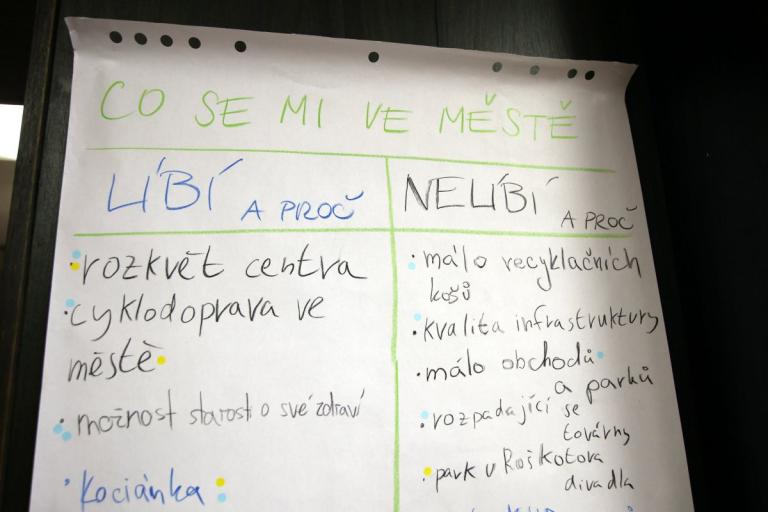 CO SE MI VE MĚSTĚ
LÍBÍ A PROČ
• rozkvět centra
• cyklodoprava ve
městě
• možnost starosti o své zdraví
• Kociánka
NELÍBÍ A PROČ
• málo recyklačních
košů
• kvalita infrastruktury
• málo obchodů
a parků
• rozpadající se
továrny
• park u Roškotova
divadla